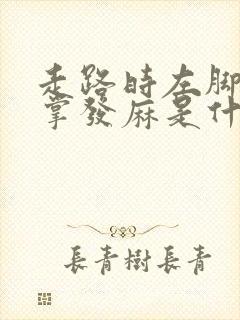 走路時左脚
掌發麻是什
長青樹長青